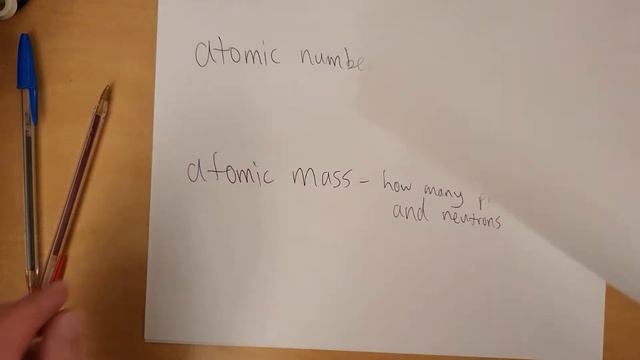 atomic
atomic mass - how many
and neutrons